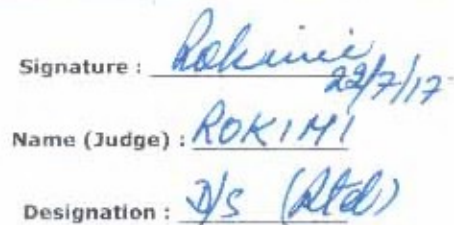 Signature : Rokimi
22/7/17
Name (Judge) : ROKIMI
Designation : D/S (Rtd)